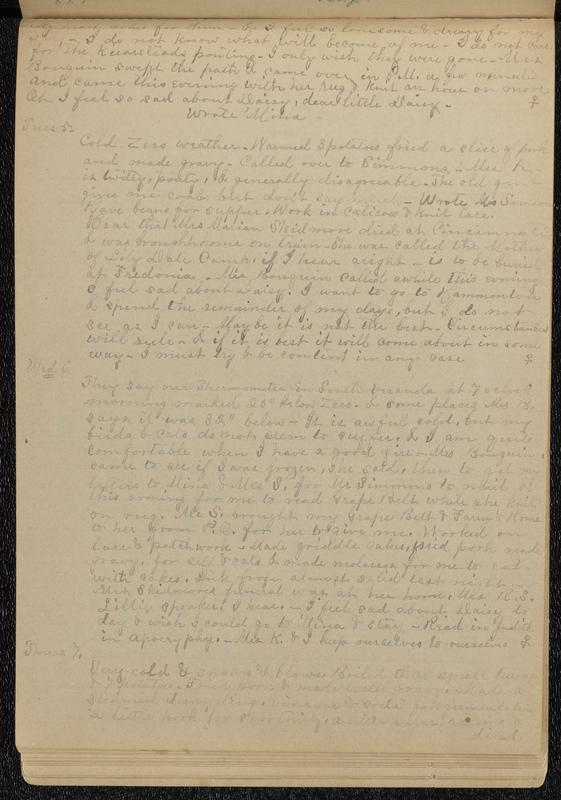 for them - I feel so lonesome & dreary for my
- I do not know what will become of me - I do not care
for the Kearsteads pouting - I only wish they were gone - Mrs
Bouquin swept the path & came over in P.M. a few minutes
and came this evening with her rug & knit an hour or more
Oh I feel so sad about Daisy, dear little Daisy -
Wrote Mina -
Tues 5 -
Cold Zero weather - Warmed 3 potatoes fried a slice of pork
and made gravy - Called over to Simmons - Mrs K -
is witty, pouty, & generally disagreeable - She old
give me coals but don't say much - Wrote Ms Simmons
gave beans for supper. Work in Calicos & knit lace.
Hear that Mrs Marian Skidmore died at Cincinnati
& was brought home on train - She was called the Mother
of Lily Dale Camp. if I hear aright - is to be buried
at Fredonia. - Mrs Bouquin called awhile this evening
I feel sad about Daisy. I want to go to Hammonton
& spend the remainder of my days, but I do not
see as I can - Maybe it is not the best - Circumstances
will - & if it is best it will come about in some
way - I must try & be content in any case
Wed 6
They say our Thermometer in South veranda at 7 oclock
morning marked 20° below Zero - & some places Mrs B.
says it was 32° below - It is awful cold, but my
birds & cats do not seem to suffer, & I am quite
comfortable when I have a good fire - Mrs Bouquin
came to see if I was frozen, she said, then to get my
letters to Mina & Mrs S. for Mr Simmons to mail &
this evening for me to read Grape Belt while she knit
on rug. Mr S. brought my Grape Belt & Farm & Home
to her from P.O. for her to give me. Worked on
lace & patchwork - Made griddle cakes, fried pork made
gravy, for self & cats & made molasses for me to eat
with cakes. Ink froze almost solid last night -
Mrs Skidmore's funeral was at her home. Mrs R.S.
Lillie speaker I hear. - I feel sad about Daisy to
day & wish I could go to Mina & stay - Read in Judith
in Apocryphy. - Mrs K. & I keep ourselves to ourselves
Thurs 7.
Very cold & snows & blows. Boiled three small
& 7 potatoes - Fried pork & made gravy. Made a
steamed dumpling, vinegar & soda
a little pork for shortning,
dried